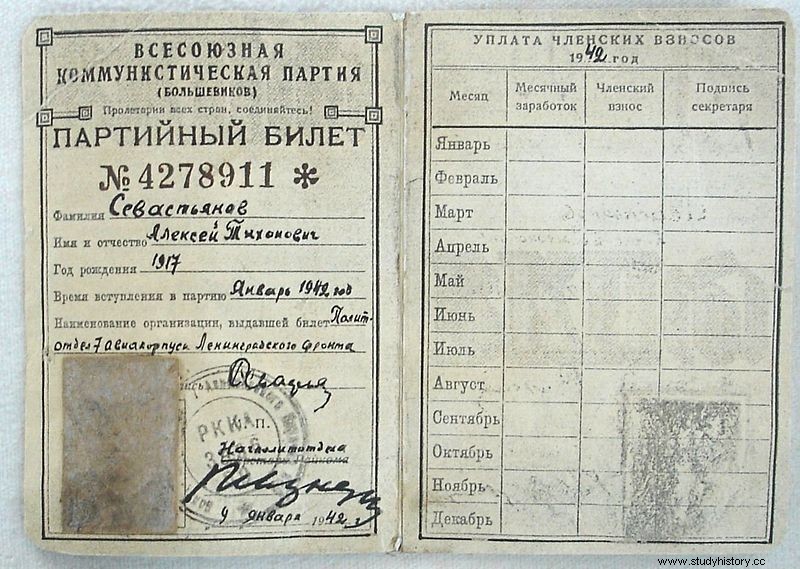 ВСЕСОЮЗНАЯ
КОММУНИСТИЧЕСКАЯ ПАРТИЯ
(БОЛЬШЕВИКОВ)
Пролетарии всех стран, соединяйтесь!
ПАРТИЙНЫЙ БИЛЕТ
№ 4278911 *
Фамилия Севастьянов
Имя и отчество Алексей Тихонович
Год рождения 1917
Время вступления в партию Январь 1942 год
Наименование организации, выдавшей билет Полит-
отдел 7 авиакорпуса Ленинградского фронта
РККА
М. П.
Начполитотдела
Секретарь Райкома
9 января 1942 г.
УПЛАТА ЧЛЕНСКИХ ВЗНОСОВ
1942 год
Месяц Месячный заработок Членский взнос Подпись секретаря
Январь
Февраль
Март
Апрель
Май
Июнь
Июль
Август
Сентябрь
Октябрь
Ноябрь
Декабрь
www.studyhistory.cc